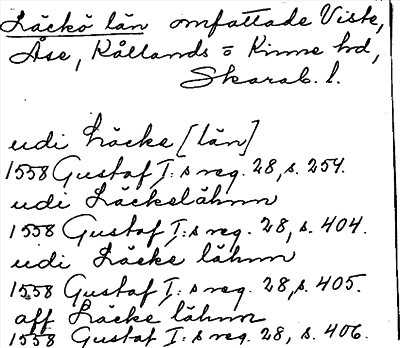 Läckö län omfattade Viste,
Åse, Kållands o Kinne hd,
Skarab. l.
udi Läcke [län]
1558 Gustaf I:s reg. 28, s. 254.
udi Läckelähnn
1558 Gustaf I:s reg. 28, s. 404.
udi Läcke lähnn
1558 Gustaf I:s reg. 28, s. 405.
aff Läcke lähnn
1558 Gustaf I:s reg. 28, s. 406.